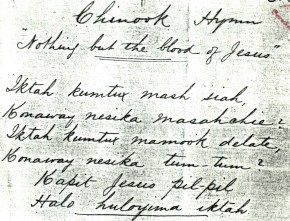 Chinook Hymn
"Nothing but the blood of Jesus"
Iktah kumtux mash siah,
Konaway nesika masahchie?
Iktah kumtux mamook delate,
Konaway nesika tum-tum?
Kapit Jesus pil-pil
Halo huloyima iktah